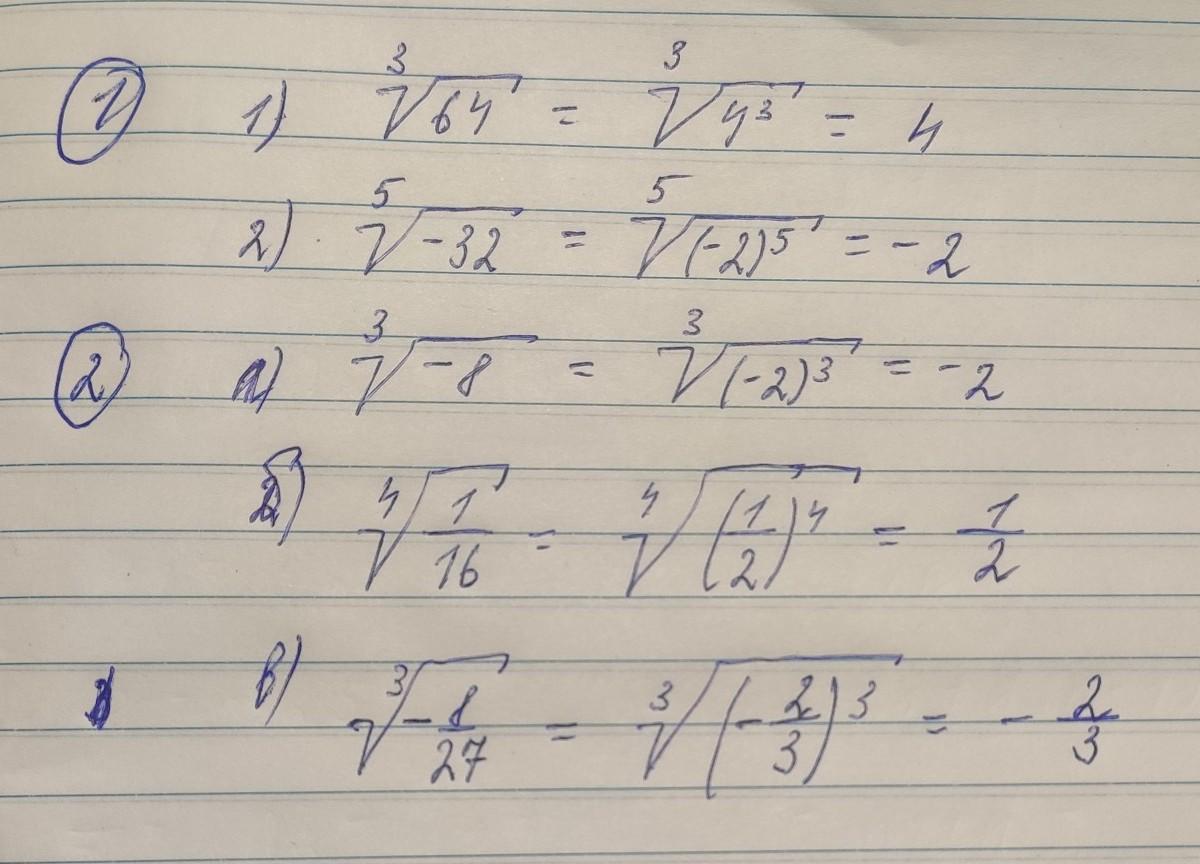 ① 1) ∛64 = ∛4³ = 4
2) ⁵√-32 = ⁵√(-2)⁵ = -2
② а) ∛-8 = ∛(-2)³ = -2
б) ⁴√(1/16) = ⁴√(1/2)⁴ = 1/2
в) ∛(-8/27) = ∛(-2/3)³ = -2/3